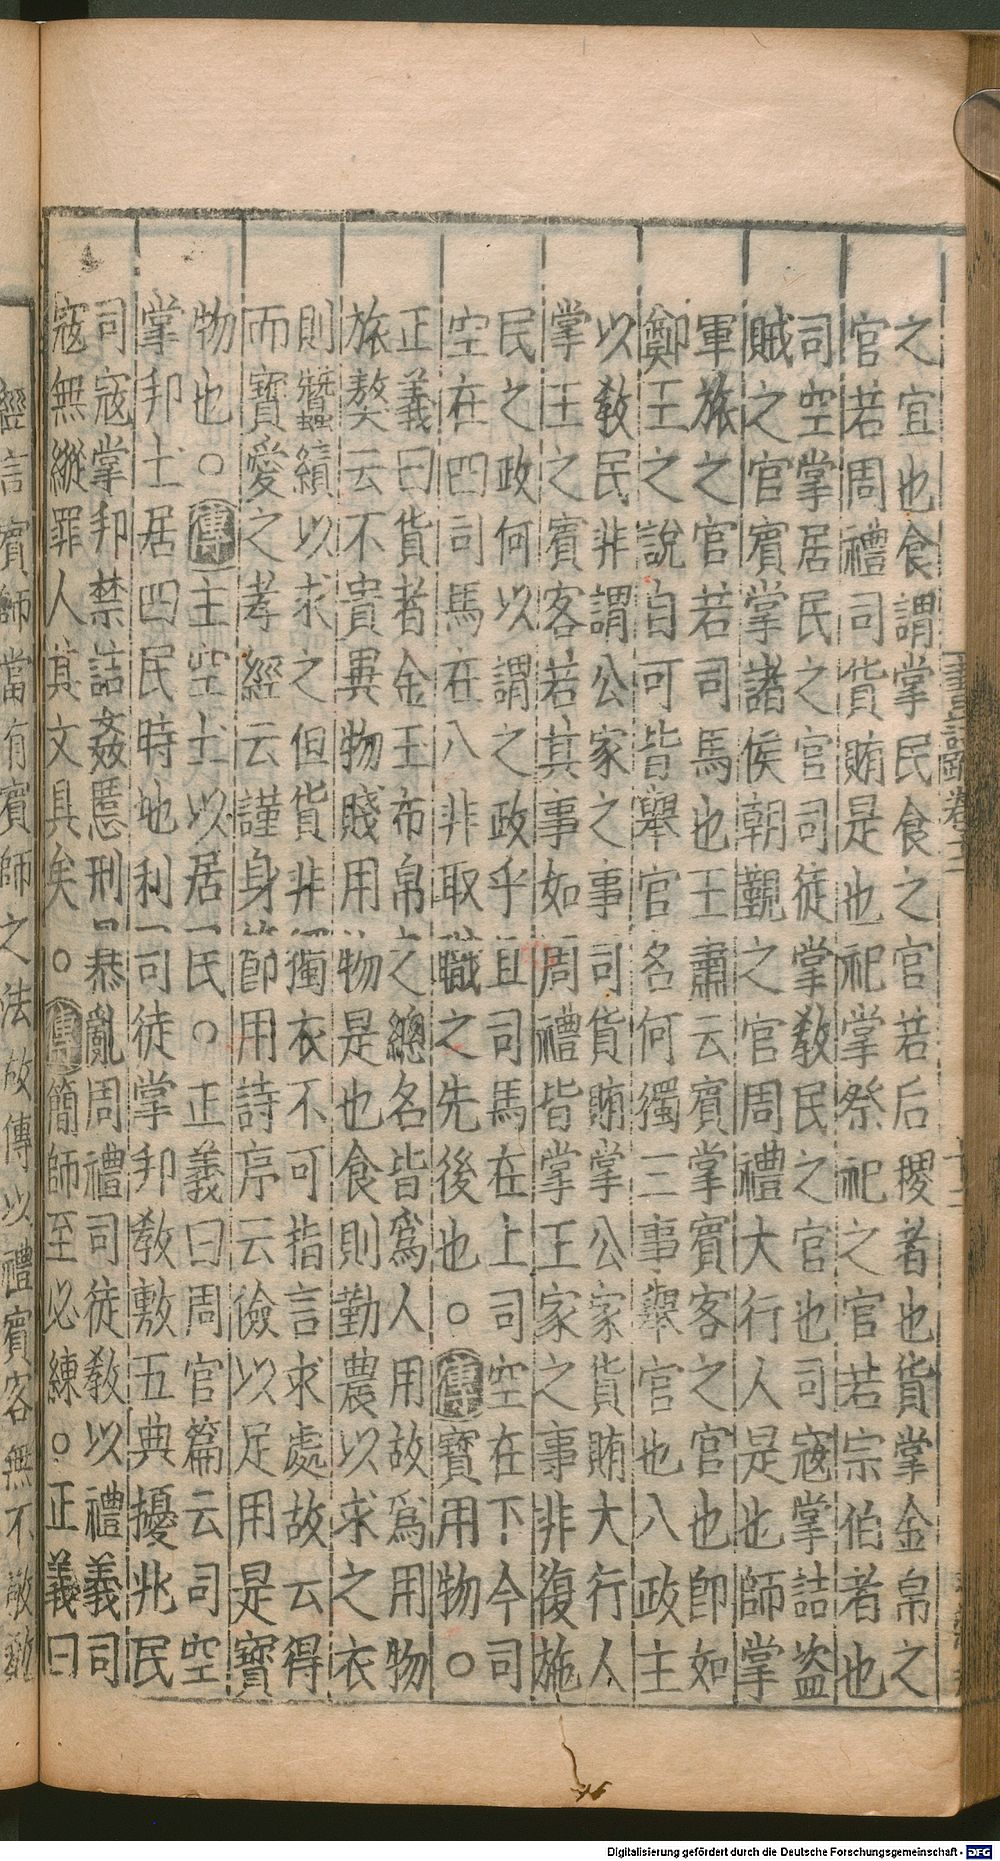 之宜也食謂掌民食之官若后稷者也貨掌金帛之
官若周禮司貨賄是也祀掌祭祀之官若宗伯者也
司空掌居民之官司徒掌教民之官也司寇掌詰盜
賊之官賓掌諸侯朝覲之官周禮大行人是也師掌
軍旅之官若司馬也王肅云賓掌賓客之官也即如
鄭王之說自可皆舉官名何獨三事舉官也八政主
以教民非謂公家之事司貨賄掌公家貨賄大行人
掌王之賓客若其事如周禮皆掌王家之事非復施
民之政何以謂之政乎且司馬在上司空在下今司
空在四司馬在八非取職之先後也○傳寶用物○
正義曰貨者金玉布帛之總名皆爲人用故爲用物
旅獒云不貴異物賤用物是也食則勤農以求之衣
則蠶績以求之但貨非獨衣不可指言求處故云得
而寶愛之孝經云謹身節用詩序云儉以足用是寶
物也○傳主空土以居民○正義曰周官篇云司空
掌邦土居四民時地利司徒掌邦教敷五典擾兆民
司寇掌邦禁詰姦慝刑暴亂周禮司徒教以禮義司
寇無縱罪人其文具矣○傳簡師至必練○正義曰
經言賓師當有賓師之法故傳以禮賓客無不敬教
Digitalisierung gefördert durch die Deutsche Forschungsgemeinschaft - DFG